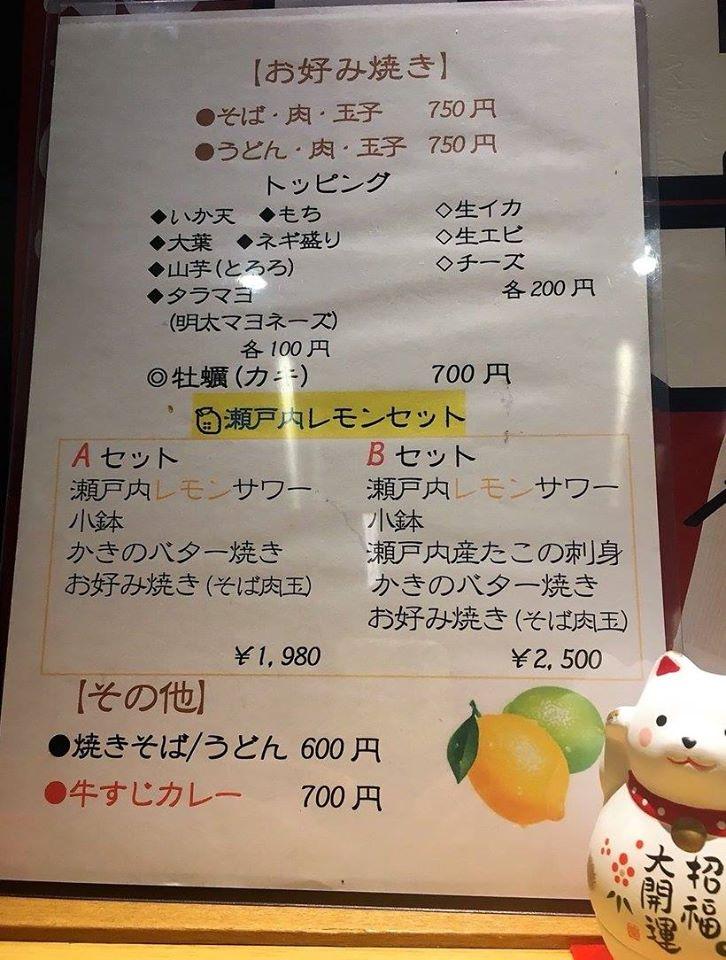 【お好み焼き】
●そば・肉・玉子 750円
●うどん・肉・玉子 750円
トッピング
◆いか天 ◆もち
◆大葉 ◆ネギ盛り
◆山芋(とろろ)
◆タラマヨ
(明太マヨネーズ)
各100円
◇生イカ
◇生エビ
◇チーズ
各200円
◎牡蠣(カキ) 700円
瀬戸内レモンセット
Aセット
瀬戸内レモンサワー
小鉢
かきのバター焼き
お好み焼き(そば肉玉)
¥1,980
Bセット
瀬戸内レモンサワー
小鉢
瀬戸内産たこの刺身
かきのバター焼き
お好み焼き(そば肉玉)
¥2,500
【その他】
●焼きそば/うどん 600円
●牛すじカレー 700円
招福
大開運